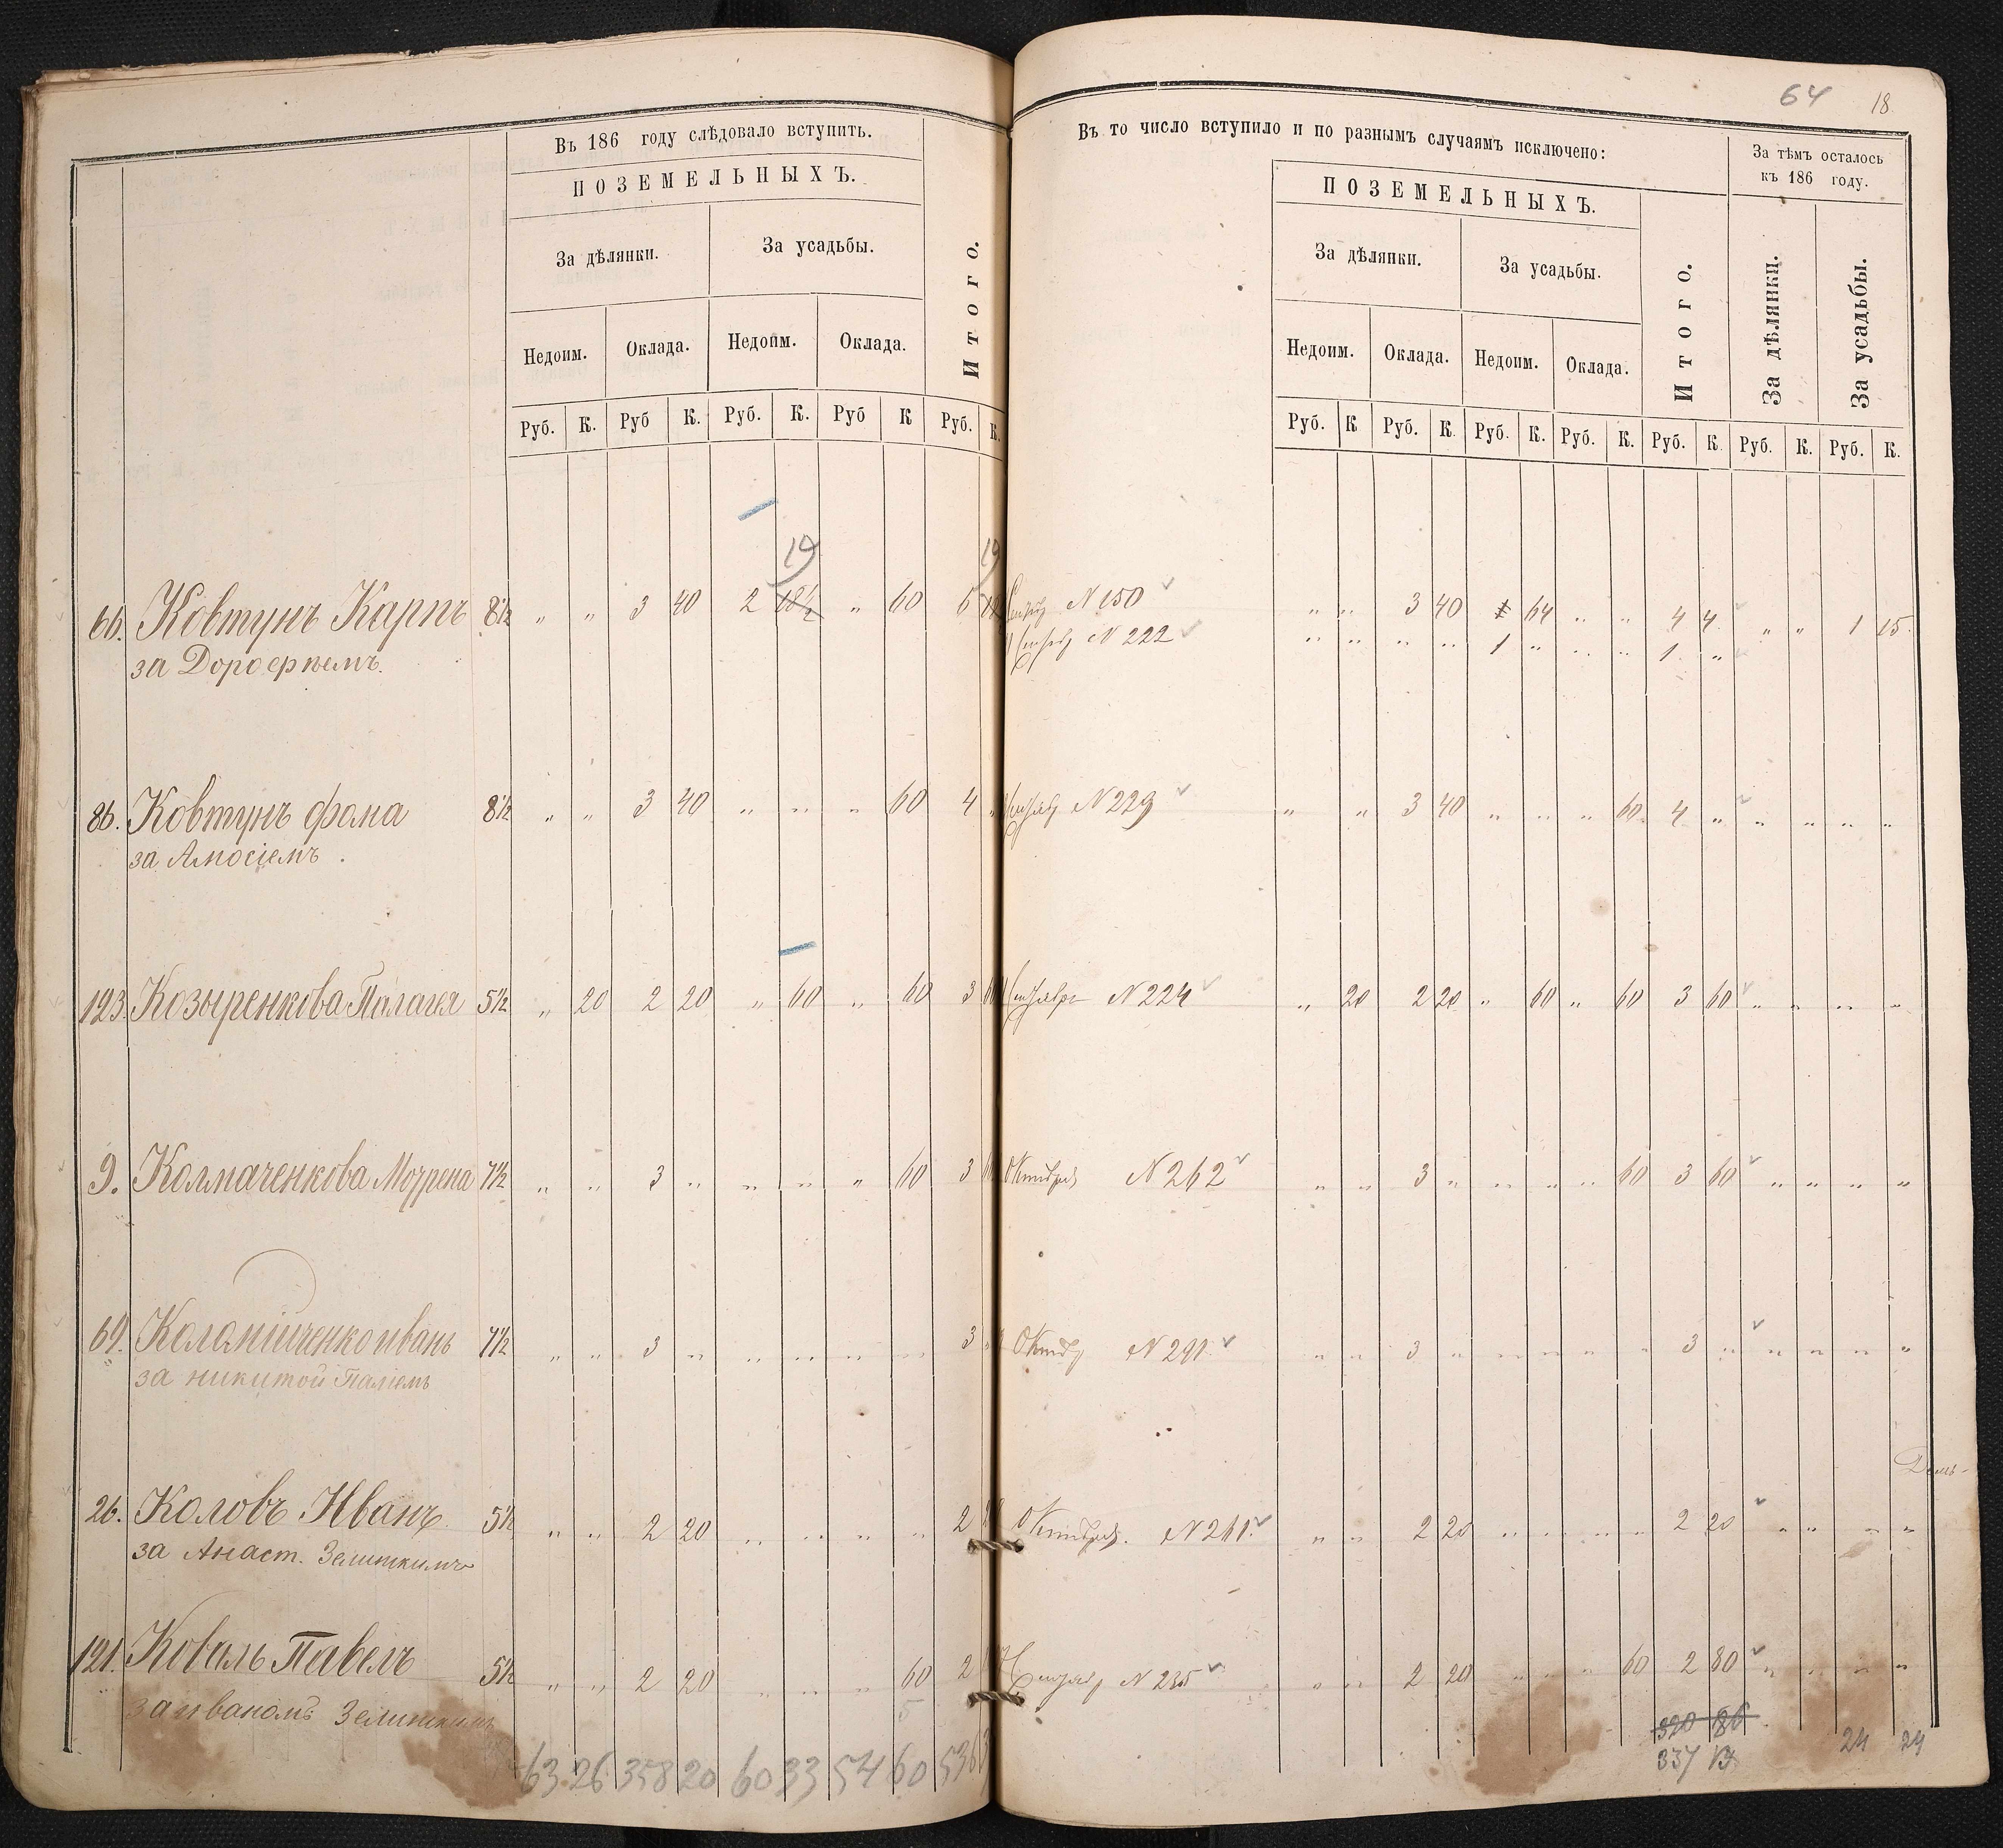 Въ 186 году слѣдовало вступить.
ПОЗЕМЕЛЬНЫХЪ.
За дѣлянки. За усадьбы. Итого.
Недоим. Оклада. Недоим. Оклада.
Руб. К. Руб К. Руб. К. Руб К Руб. К.
19 19
66. Ковтунъ Карпъ 8½ „ „ 3 40 2 18½ „ 60 6
за Дорофѣемъ.
86. Ковтунъ Фома 8½ „ „ 3 40 „ „ „ 60 4 „
за Амосіемъ.
123. Козыренкова Палагея 5½ „ 20 2 20 „ 60 „ 60 3 60
9. Колмаченкова Мотрена 7½ „ „ 3 „ „ „ „ 60 3 60
69. Коломійченко иванъ 7½ „ „ 3 „ „ „ „ „ 3 „
за никитой Паліемъ
26. Коловъ Иванъ 5½ „ „ 2 20 „ „ „ „ 2 20
за Анаст. Зелиткимъ
121. Коваль Павелъ 5½ „ „ 2 20 „ „ „ 60 2
за иваномъ Зелиткимъ 5
63 26 358 20 60 33 54 60 536
64 18.
Въ то число вступило и по разнымъ случаямъ исключено:
За тѣмъ осталось
къ 186 году.
ПОЗЕМЕЛЬНЫХЪ.
За дѣлянки. За усадьбы. Итого. За дѣлянки. За усадьбы.
Недоим. Оклада. Недоим. Оклада.
Руб. К. Руб. К. Руб. К. Руб. К. Руб. К. Руб. К. Руб. К.
N 150 „ „ 3 40 1 64 „ „ 4 4 „ „ 1 15.
N 222 „ „ „ „ 1 „ „ „ 1 „
N 229 „ „ 3 40 „ „ „ 60 4 „ „ „ „ „
N 224 „ 20 2 20 „ 60 „ 60 3 60 „ „ „ „
Октября N 262 „ „ 3 „ „ „ „ 60 3 60 „ „ „ „
Октяб N 291 „ „ 3 „ „ „ „ „ 3 „ „ „ „ „
Октября. N 261. „ „ 2 20 „ „ „ „ 2 20 „ „ „ „
N 235 „ „ 2 20 „ „ „ 60 2 80 „ „ „ „
320 86
337 24 24